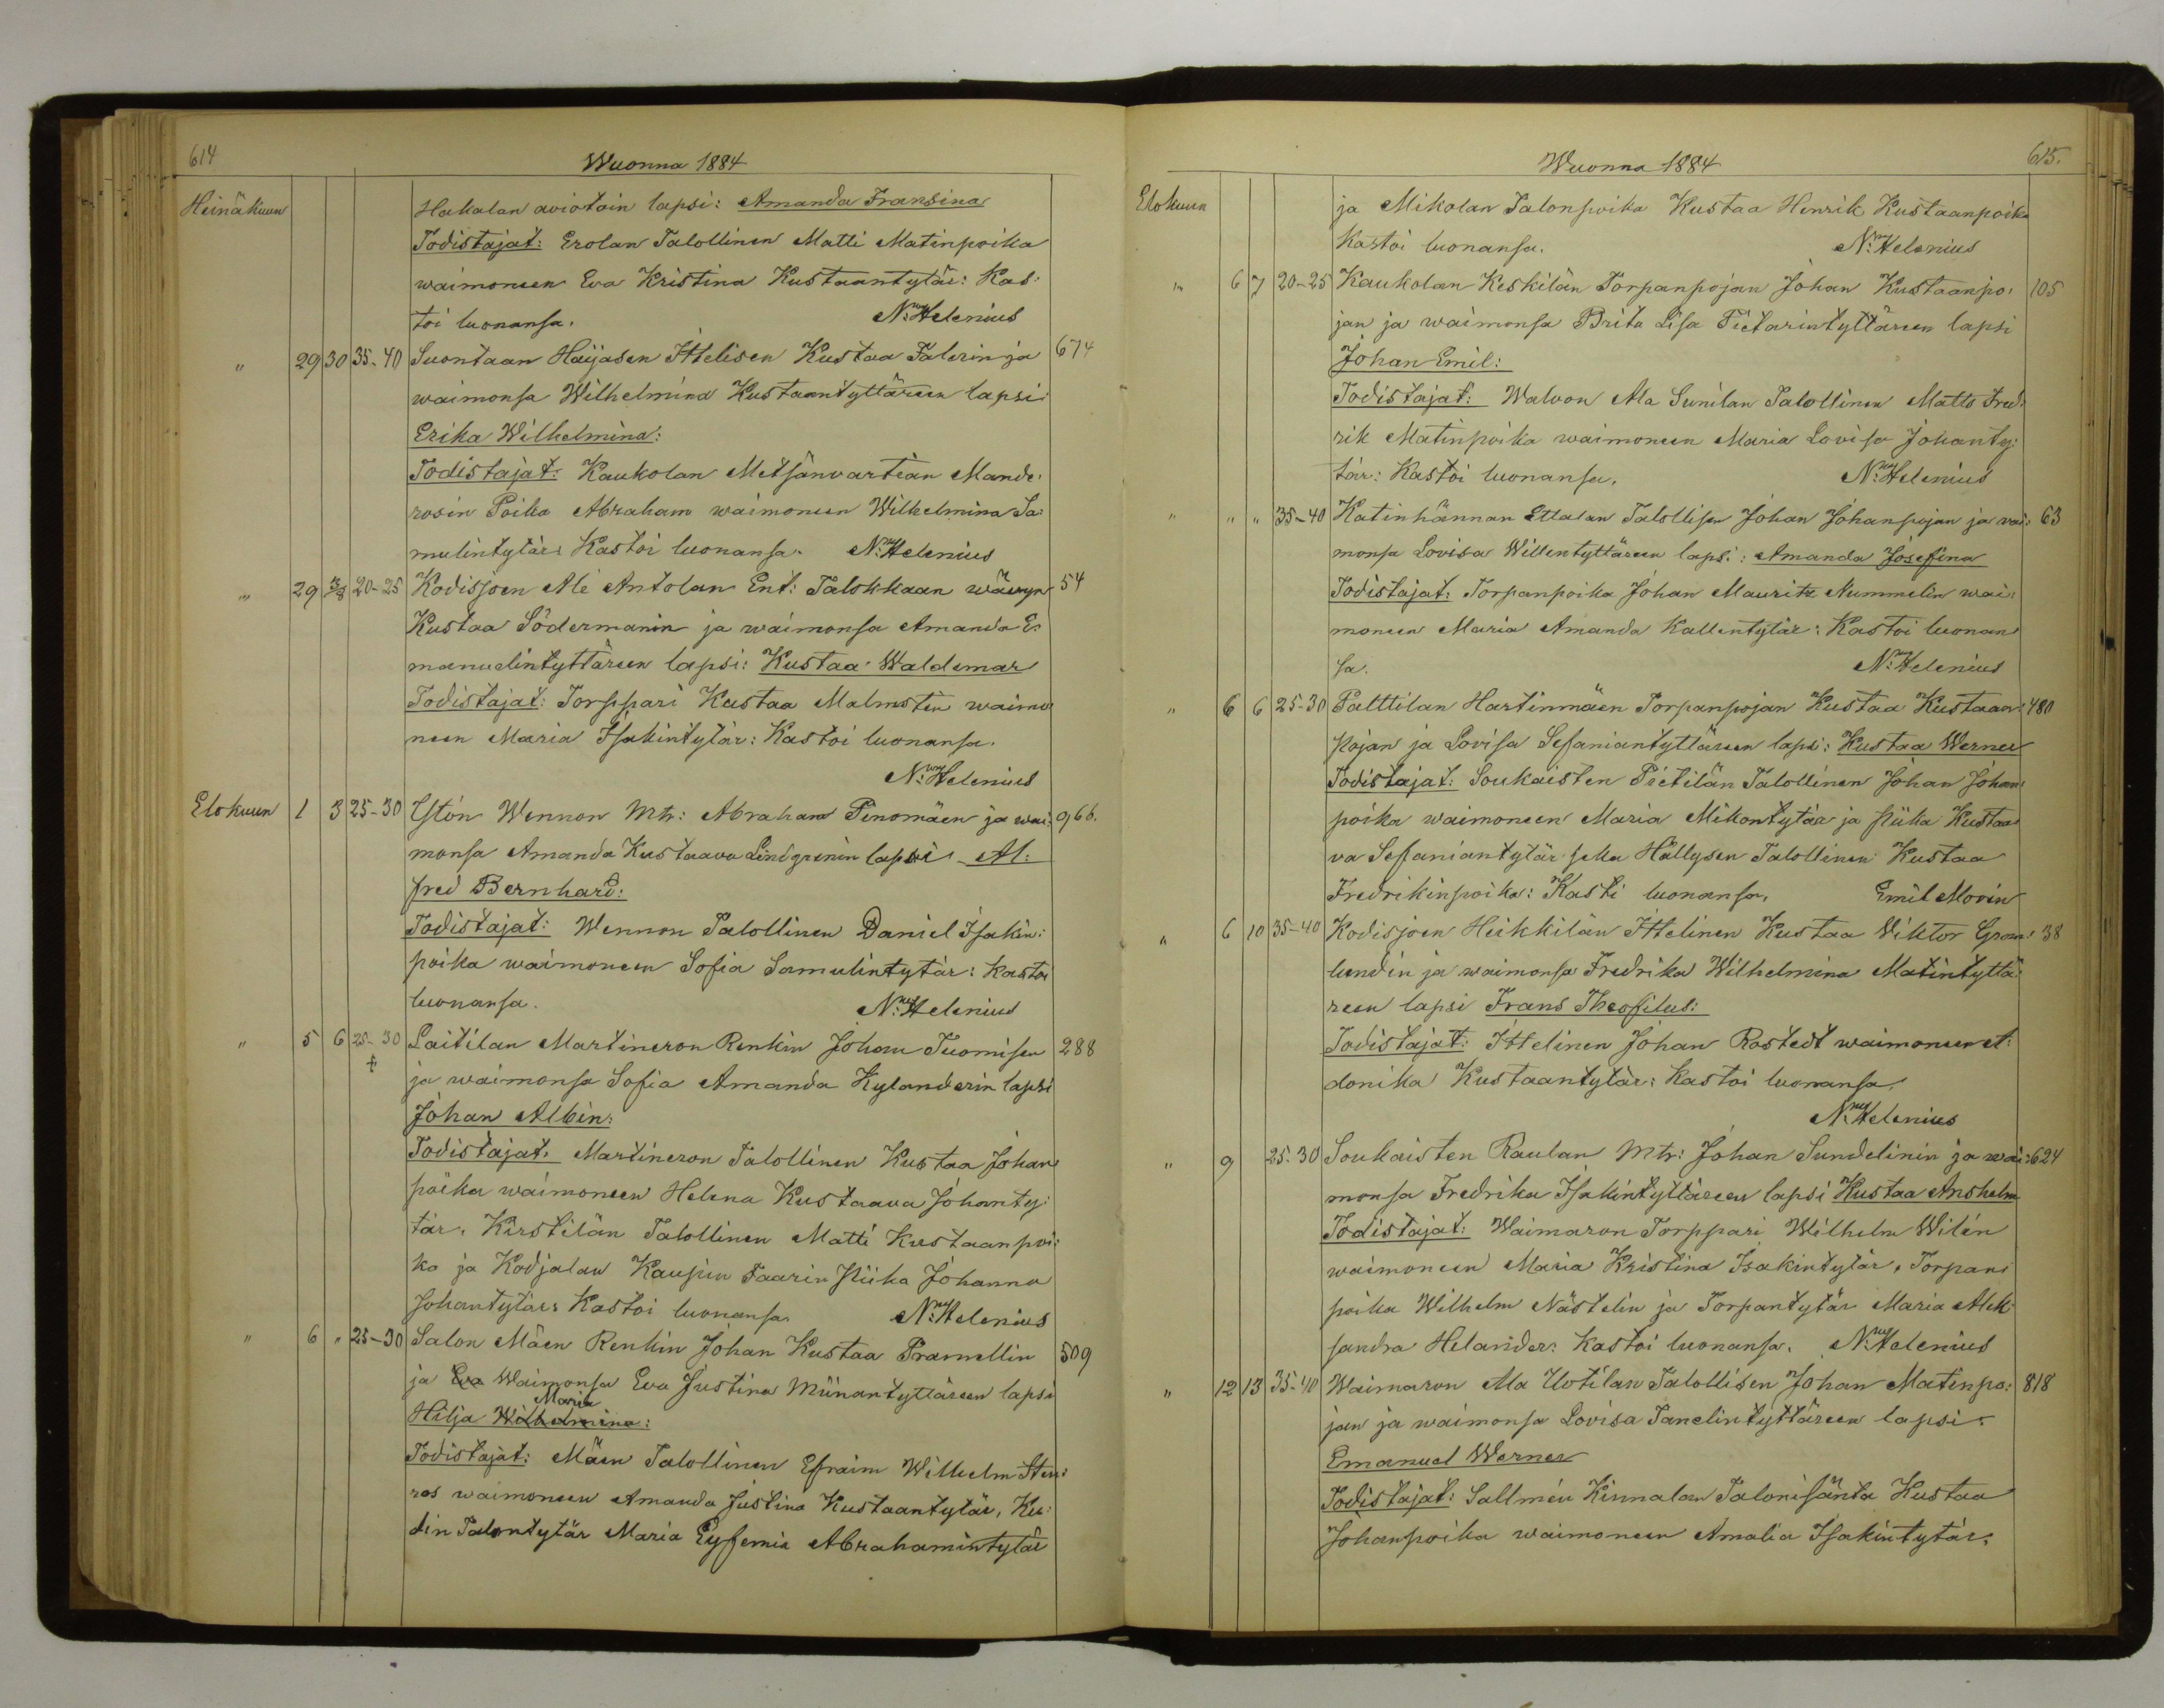 614
Wuonna 1884
Heinäkuun Hakalan aviotoin lapsi: Amanda Fransina
Todistajat: Erolan Talollinen Matti Matinpoika
waimoneen Eva Kristina Kustaantytär: Kas:
toi luonansa. N:ny Helenius
" 29 30 35-40 Suontaan Haijasen Ittelisen Kustaa Falerin ja 674
waimonsa Wilhelmina Kustaantyttäreen lapsi
Erika Wilhelmina:
Todistajat: Kaukolan Metsänvartian Mande:
rosin Poika Abraham waimoneen Wilhelmina Sa:
mulintytär: Kastoi luonansa. N:ny Helenius
" 29 20-25 Kodisjoen Ali Antolan Ent: Talokkaan wävyn 54
Kustaa Södermanin ja waimonsa Amanda E:
manuelintyttäreen lapsi: Kustaa Waldemar
Todistajat: Torppari Kustaa Malmstén waimo
neen Maria Isakintytär: Kastoi luonansa.
N:ny Helenius
Elokuun 1 3 25-30 Wennon Mtr: Abraham Pinomäen ja wai: 966.
monsa Amanda Kustaava Lindgrenin lapsi Al:
fred Bernhard:
Todistajat: Wennon Talollinen Daniel Isakin:
poika waimoneen Sofia Samulintytär: Kastoi
luonansa. N:ny Helenius
" 5 6 25-30 Laitilan Martineron Renkin Johan Tuomisen 288
† ja waimonsa Sofia Amanda Kylanderin lapsi
Johan Albin:
Todistajat. Martineron Talollinen Kustaa Johan
poika waimoneen Helena Kustaava Johanty:
tär, Kirstilän Talollinen Matti Kustaanpoi:
ka ja Kodjalan Kaupin Taarin Piika Johanna
Johantytär: Kastoi luonansa. N:ny Helenius
" 6 " 25-30 Salon Mäen Renkin Johan Kustaa Pramellin 509
ja Eva Waimonsa Eva Justina Miinantyttäreen lapsi
Maria
Hilja Wilhelmina:
Todistajat: Mäen Talollinen Efraim Wilhelm Sten:
ros waimoneen Amanda Justina Kustaantytär, Ku:
din Talontytär Maria Eyfemia Abrahamintytär
Wuonna 1884
615.
Elokuun ja Mikolan Talonpoika Kustaa Henrik Kustaanpoika
Kastoi luonansa. N:ny Helenius
" 6 7 20-25 Kaukolan Keskilän Torpanpojan Johan Kustaanpo: 105
jan ja waimonsa Brita Lisa Pietarintyttäreen lapsi
Johan Emil:
Todistajat: Walvon Ala Sunilan Talollinen Matts Fred:
rik Matinpoika waimoneen Maria Lovisa Johanty:
tär: Kastoi luonansa. N:ny Helenius
" " " 35-40 Katinhännan Ettalan Talollisen Johan Johanpojan ja wai: 63
monsa Lovisa Willentyttäreen lapsi: Amanda Josefina
Todistajat: Torpanpoika Johan Mauritz Nummelin wai:
moneen Maria Amanda Kallentytär: Kastoi luonan
sa. N:ny Helenius
" 6 6 25-30 Palttilan Hartinmäen Torpanpojan Kustaa Kustaan: 480
pojan ja Lovisa Sefaniantyttäreen lapsi: Kustaa Werner
Todistajat: Soukaisten Pietilän Talollinen Johan Johan:
poika waimoneen Maria Mikontytär ja Piika Kustaa
va Sefaniantytär seka Hällysen Talollinen Kustaa
Fredrikinpoika: Kasti luonansa, Emil Movin
" 6 10 35-40 Kodisjoen Heikkilän Ittelinen Kustaa Wiktor Grön: 38
lundin ja waimonsa Fredrika Wilhelmina Matintyttä
reen lapsi Frans Theofilus:
Todistajat: Ittelinen Johan Rostedt waimoneen A:
donika Kustaantytär: Kastoi luonansa,
N:ny Helenius
" 9 25-30 Soukaisten Raulan Mtr: Johan Sundelinin ja wai: 624
monsa Fredrika Isakintyttäreen lapsi Kustaa Anshelm
Todistajat: Waimaron Torppari Wilhelm Wilén
waimoneen Maria Kristina Isakintytär, Torpan:
poika Wilhelm Nästelin ja Torpantytär Maria Alek:
sandra Helander: Kastoi luonansa. N:ny Helenius
" 12 13 35-40 Waimaron Ala Uotilan Talollisen Johan Matinpo: 818
jan ja waimonsa Lovisa Tanelintyttäreen lapsi:
Emanuel Werner
Todistajat: Sallmén Kinnalan Talonisäntä Kustaa
Johanpoika waimoneen Amalia Isakintytär: